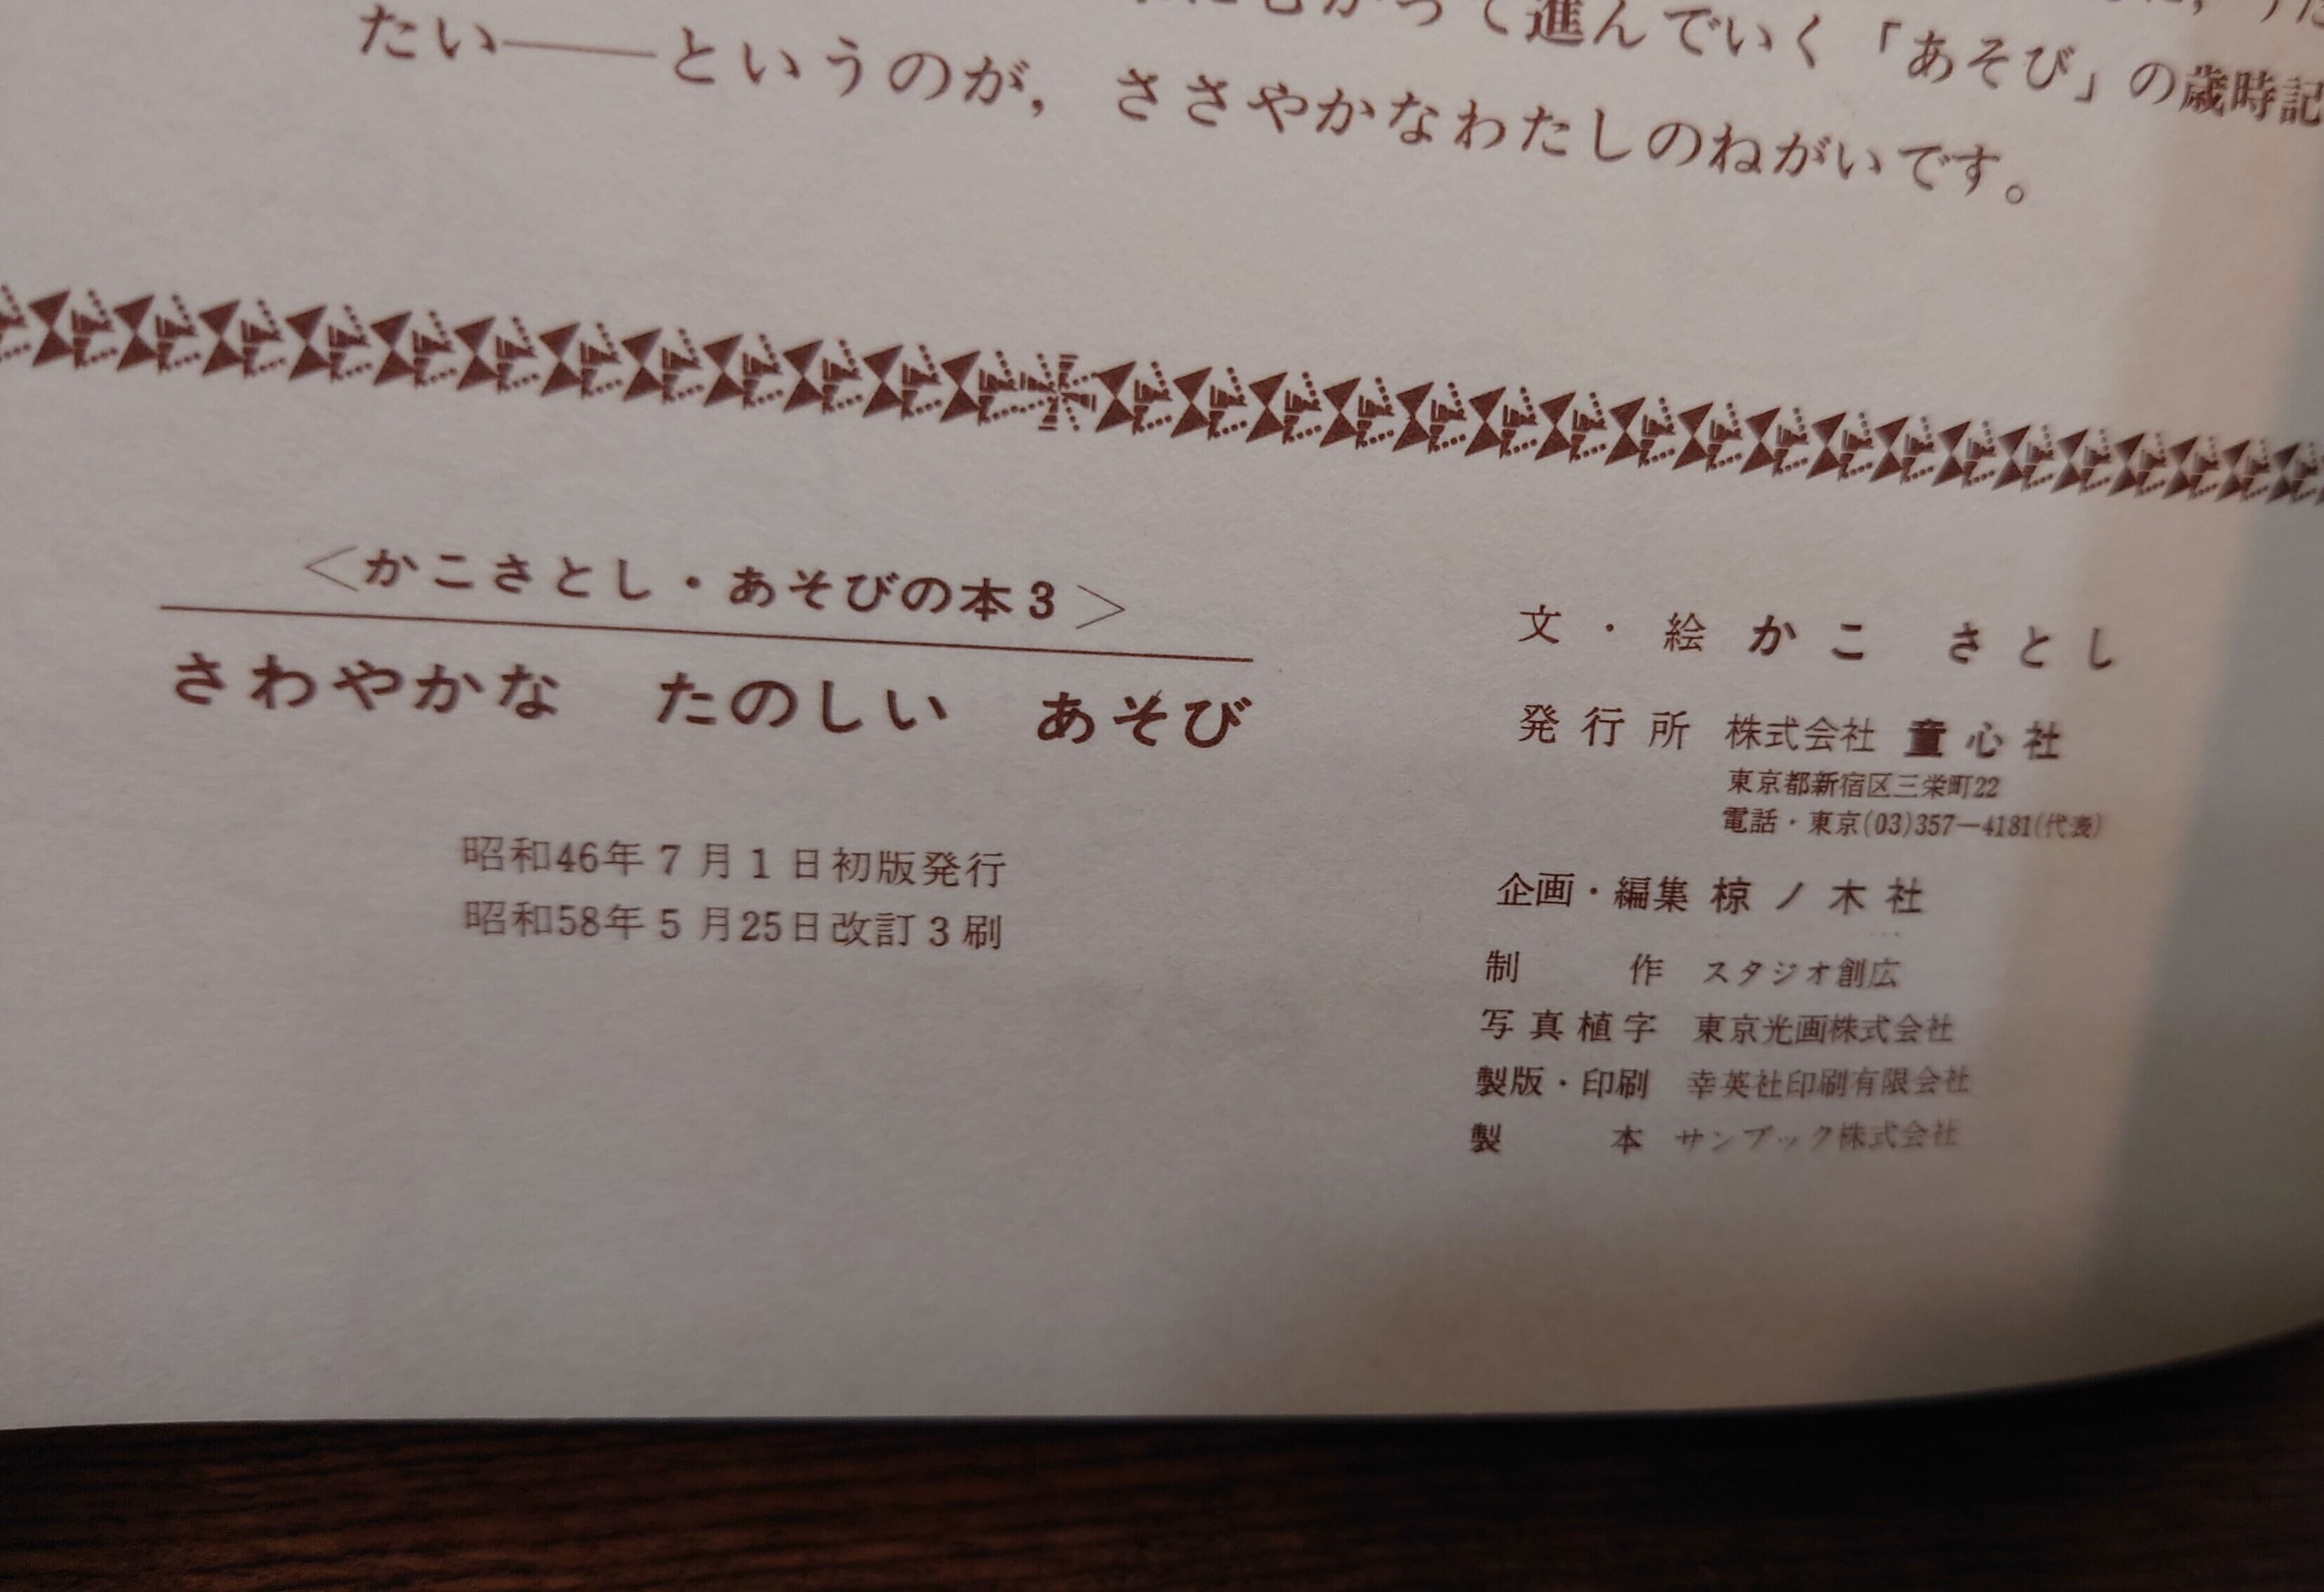 って進んでいく「あそび」の歳時記
たい――というのが，ささやかなわたしのねがいです。
＜かこさとし・あそびの本3＞
さわやかな　たのしい　あそび
昭和46年7月1日初版発行
昭和58年5月25日改訂3刷
文・絵 かこ さとし
発行所 株式会社 童心社
東京都新宿区三栄町22
電話・東京(03)357―4181(代表)
企画・編集 椋ノ木社
制作 スタジオ創広
写真植字 東京光画株式会社
製版・印刷 幸英社印刷有限会社
製本 サンブック株式会社